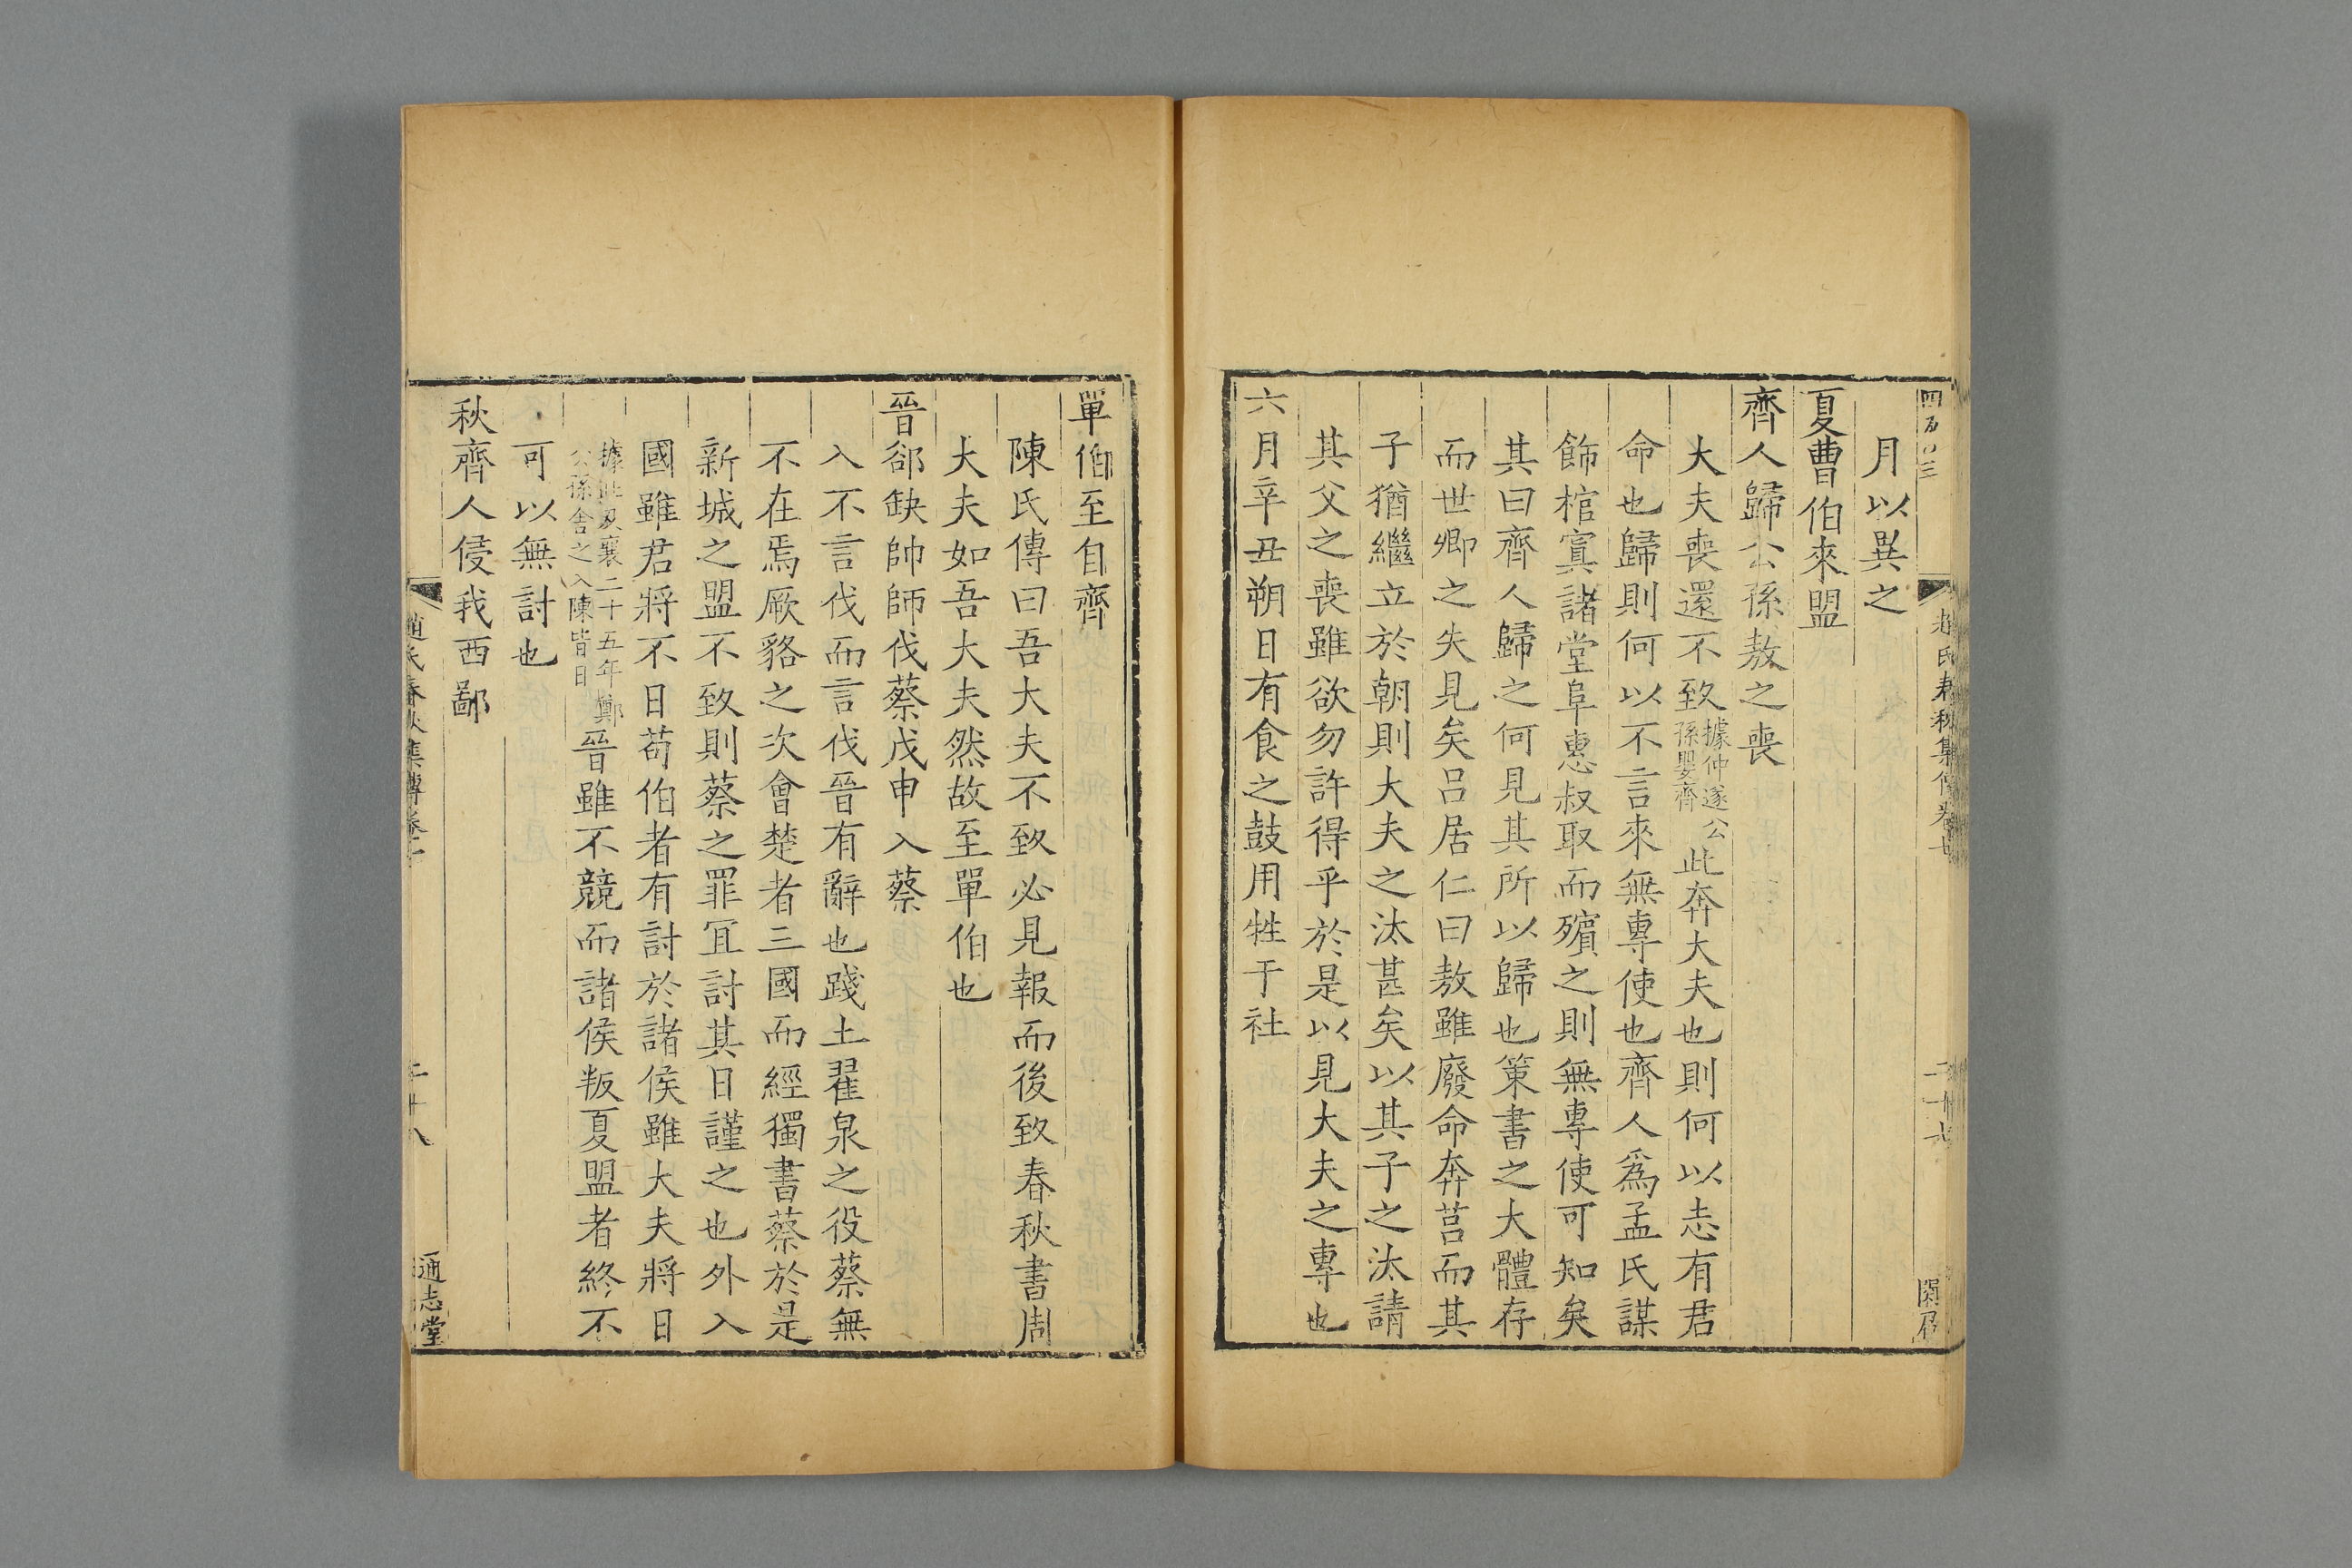 四百〇三
趙氏春秋集傳卷七
二十七
月以異之
夏曹伯來盟
齊人歸公孫敖之喪
大夫喪還不致據仲遂公孫嬰齊此奔大夫也則何以志有君
命也歸則何以不言來無專使也齊人爲孟氏謀
飾棺寘諸堂阜惠叔取而殯之則無專使可知矣
其曰齊人歸之何見其所以歸也策書之大體存
而世卿之失見矣呂居仁曰敖雖廢命奔莒而其
子猶繼立於朝則大夫之汰甚矣以其子之汰請
其父之喪雖欲勿許得乎於是以見大夫之專也
六月辛丑朔日有食之鼓用牲于社
單伯至自齊
陳氏傳曰吾大夫不致必見報而後致春秋書周
大夫如吾大夫然故至單伯也
晉郤缺帥師伐蔡戊申入蔡
入不言伐而言伐晉有辭也踐土翟泉之役蔡無
不在焉厥貉之次會楚者三國而經獨書蔡於是
新城之盟不致則蔡之罪冝討其日謹之也外入
國雖君將不日苟伯者有討於諸侯雖大夫將日
據此及襄二十五年鄭公孫舍之入陳皆日晉雖不競而諸侯叛夏盟者終不
可以無討也
秋齊人侵我西鄙
趙氏春秋集傳卷七
二十八
通志堂